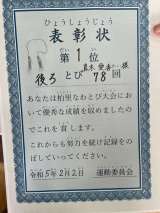 ひょうしょうじょう
表彰状
だい い
第1位
後ろとび 78回
あなたは柏里なわとび大会において優秀な成績を収めましたのでこれを賞します。
これからも努力を続け記録をのばしていってください。
令和5年2月2日 運動委員会